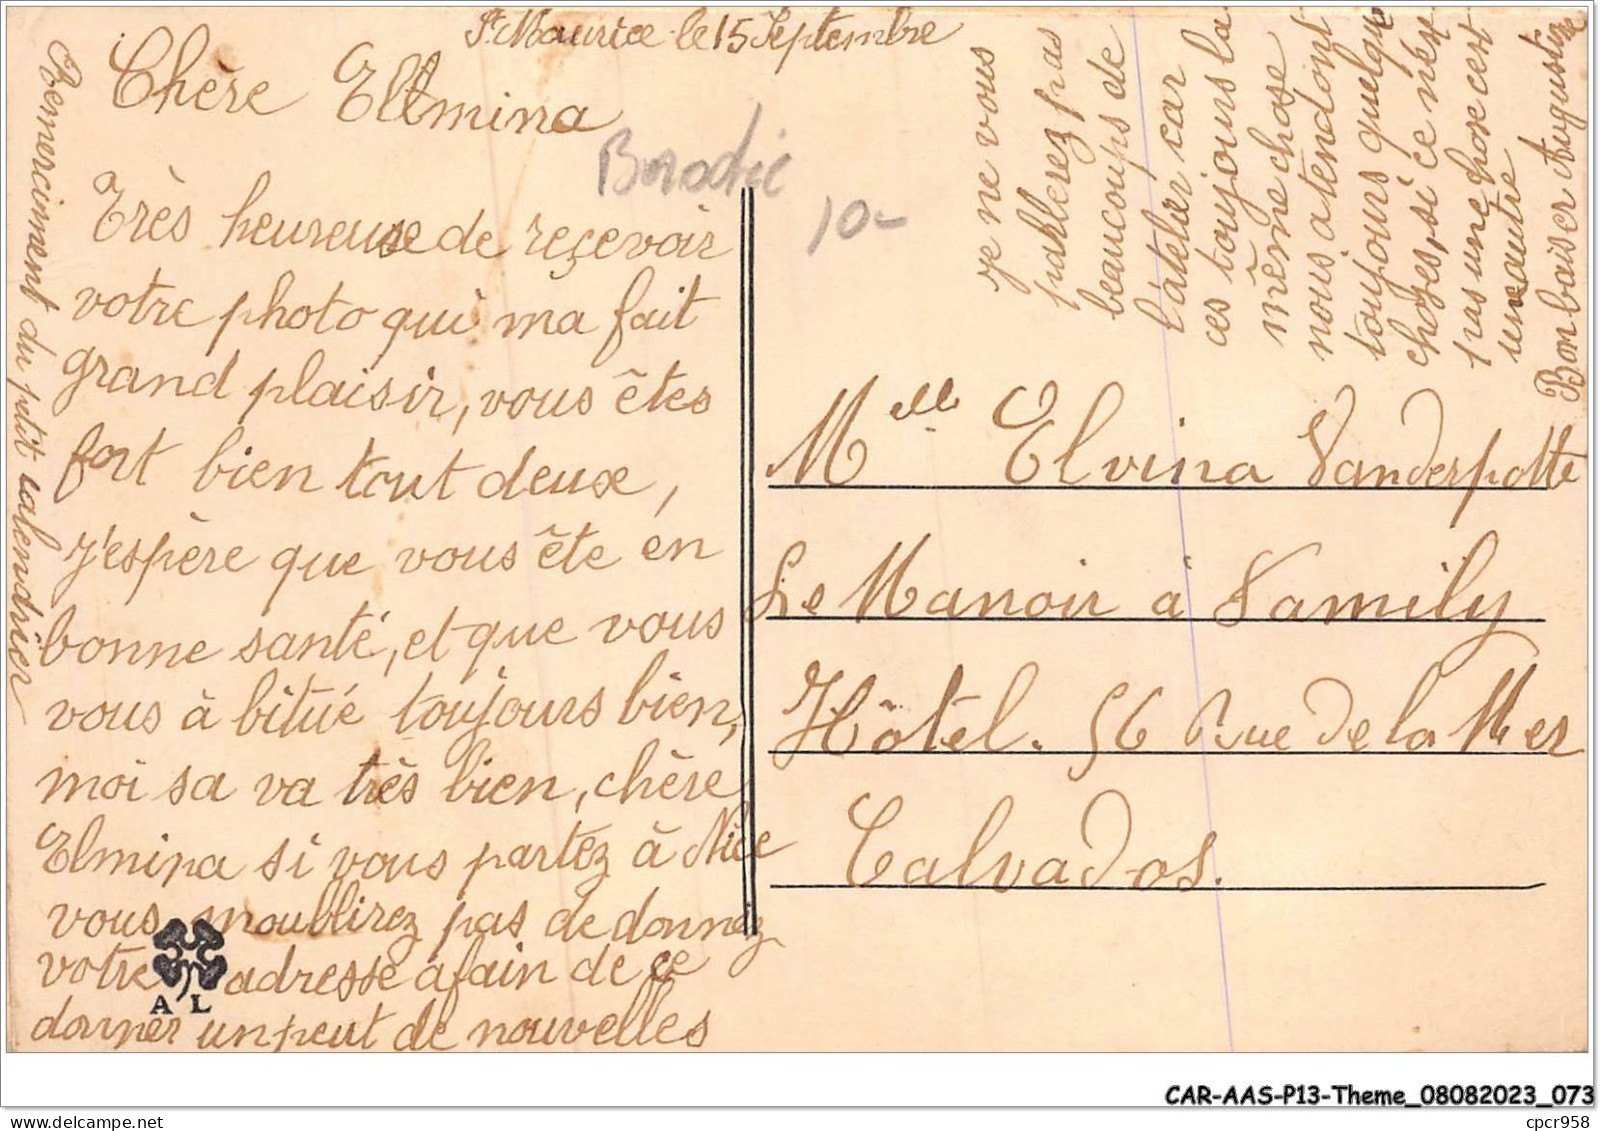 St Maurice le 15 Septembre
Chère Ellmina
Très heureuse de reçevoir
votre photo qui ma fait
grand plaisir, vous êtes
fort bien tout deux,
j'espère que vous ête en
bonne santé, et que vous
vous à bitué toujours bien,
moi sa va très bien, chère
Elmina si vous partez à Nice
vous moublirez pas de donnez
votre adresse àfain de ce
donner un peut de nouvelles
Remerciment du petit calendrier
je ne vous
parlerez pas
beaucoups de
l'atelier car
ces toujours la
même chose
nous atendont
toujours quelque
choses, si ce n'est
pas une chose cest
une autre
Bon baiser Augustine
10-
Melle Elvina Vanderpotte
Le Manoir à Vamily
Hôtel. 56 Rue de la Mer
Calvados.
A L
CAR-AAS-P13-Theme_08082023_073
delcampe.net
cpcr958